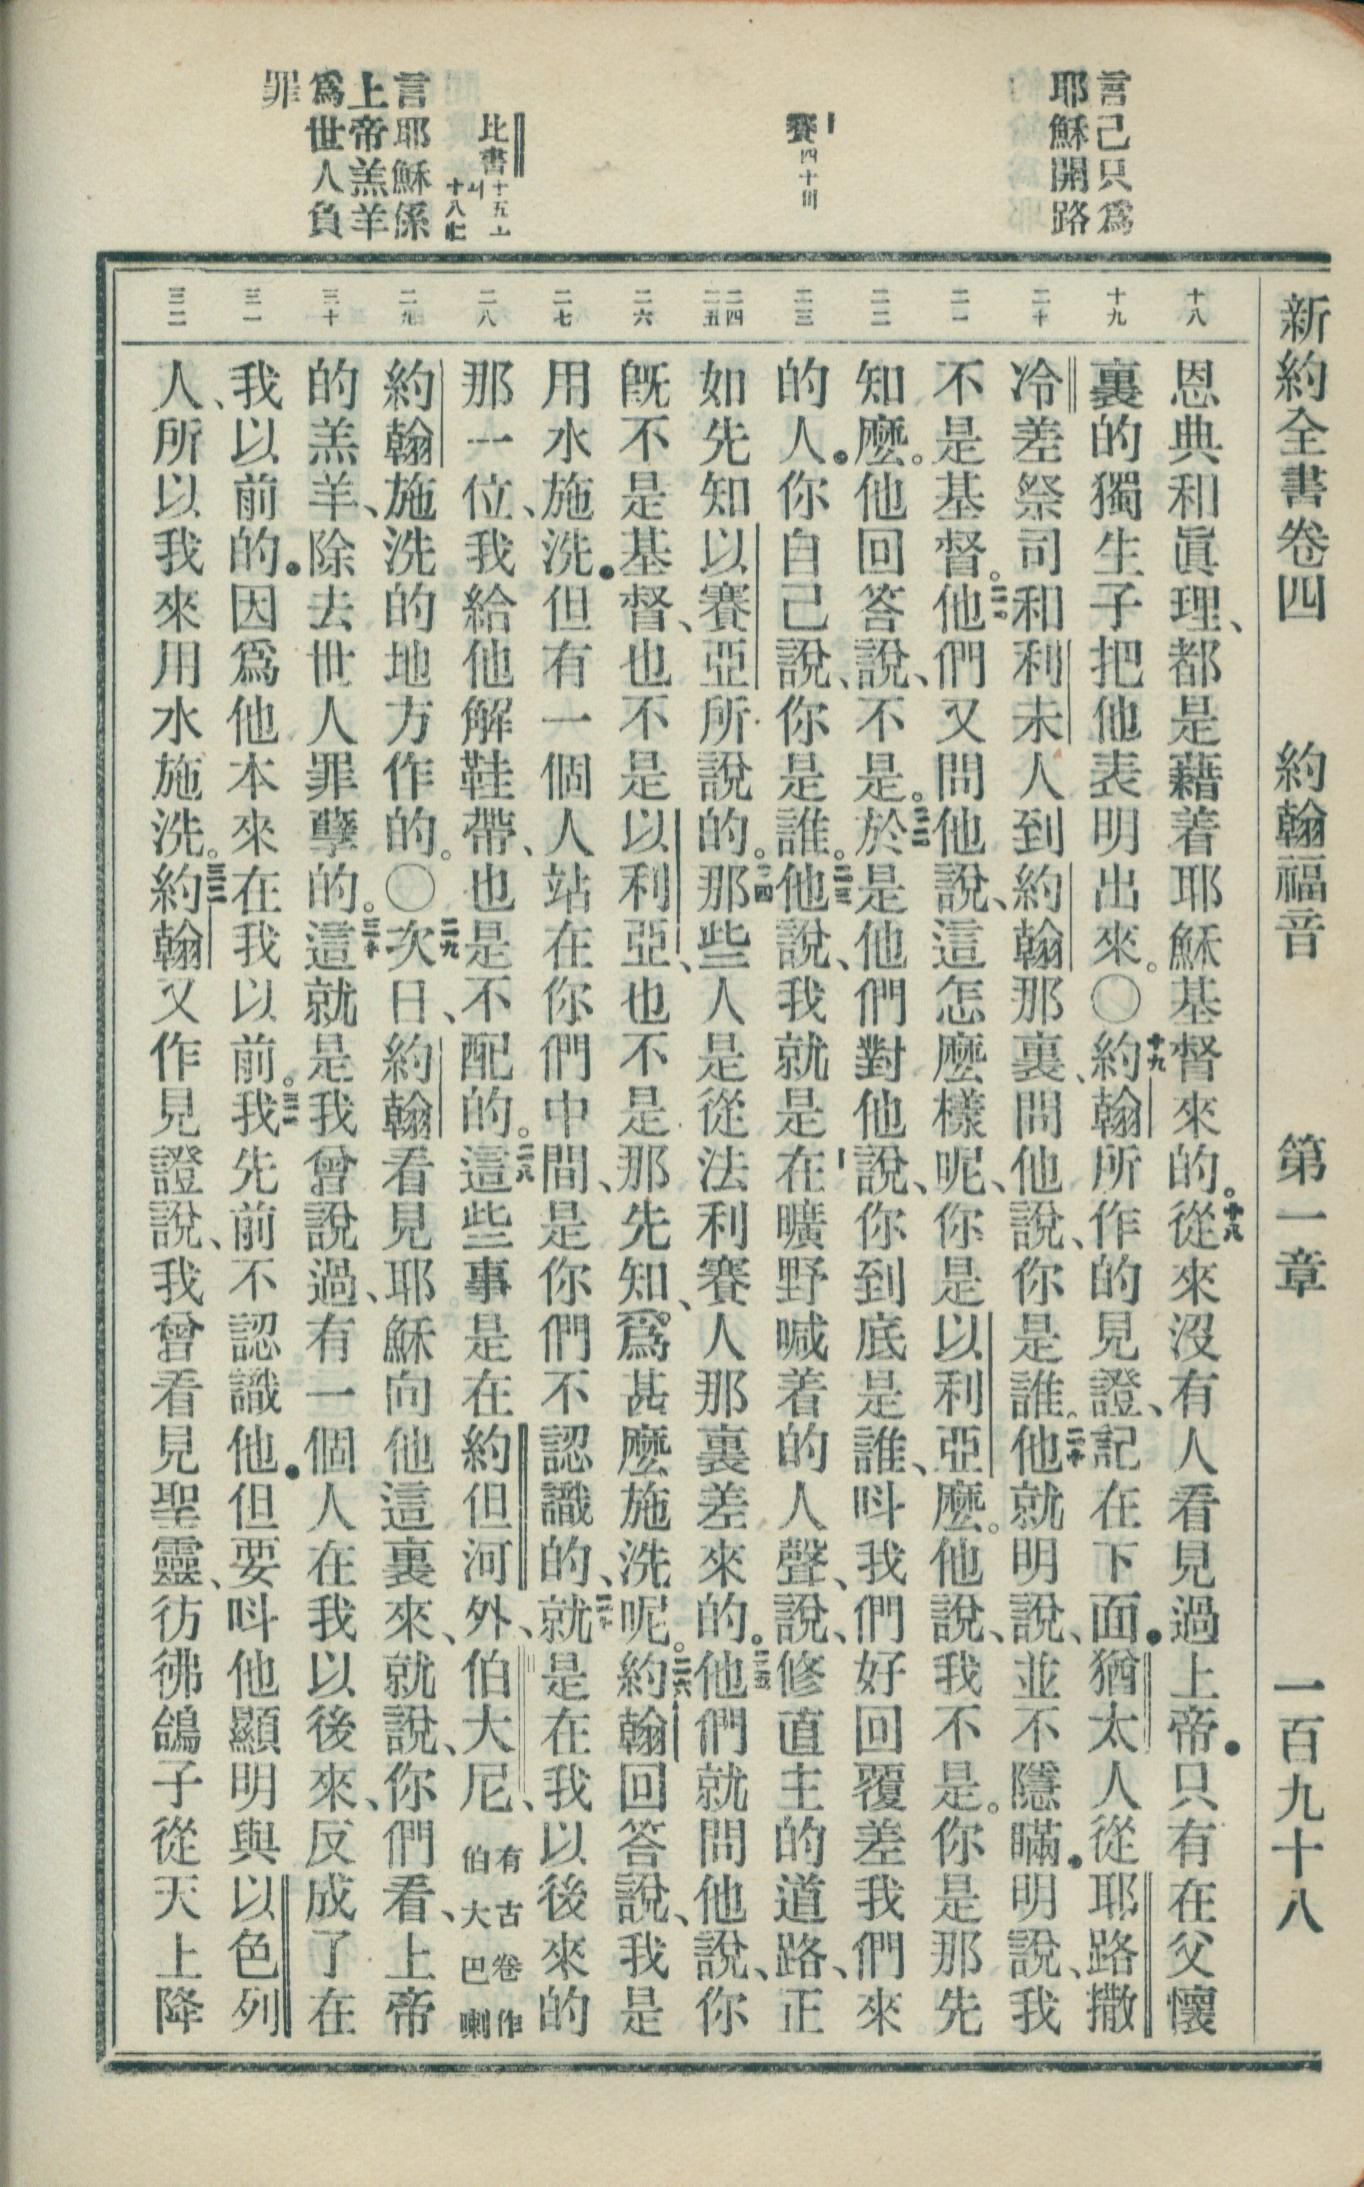 新約全書卷四　約翰福音　第一章　一百九十八
言己只爲
耶穌開路
賽四十
比書
言耶穌係
上帝羔羊
爲世人負
罪
十八
十九
二十
二一
二二
二三
二四
二五
二六
二七
二八
二九
三十
三一
三二
恩典和眞理、都是藉着耶穌基督來的。十八從來沒有人看見過上帝．只有在父懷
裏的獨生子把他表明出來。〇十九約翰所作的見證、記在下面．猶太人從耶路撒
冷差祭司和利未人到約翰那裏、問他說、你是誰。二十他就明說、並不隱瞞．明說、我
不是基督。二一他們又問他說、這怎麽樣呢、你是以利亞麽。他說、我不是。你是那先
知麽。他回答說、不是。二二於是他們對他說、你到底是誰、呌我們好回覆差我們來
的人．你自己說、你是誰。二三他說、我就是在曠野喊着的人聲、說、修直主的道路、正
如先知以賽亞所說的。二四那些人是從法利賽人那裏差來的。二五他們就問他說、你
旣不是基督、也不是以利亞、也不是那先知、爲甚麽施洗呢。二六約翰回答說、我是
用水施洗．但有一個人站在你們中間、是你們不認識的、二七就是在我以後來的
那一位、我給他解鞋帶、也是不配的。二八這些事是在約但河外、伯大尼、有古卷作伯大巴喇
約翰施洗的地方作的。〇二九次日、約翰看見耶穌向他這裏來、就說、你們看、上帝
的羔羊、除去世人罪孽的。三十這就是我曾說過、有一個人在我以後來、反成了在
我以前的．因爲他本來在我以前。三一我先前不認識他．但要呌他顯明與以色列
人、所以我來用水施洗。三二約翰又作見證說、我曾看見聖靈、彷彿鴿子從天上降